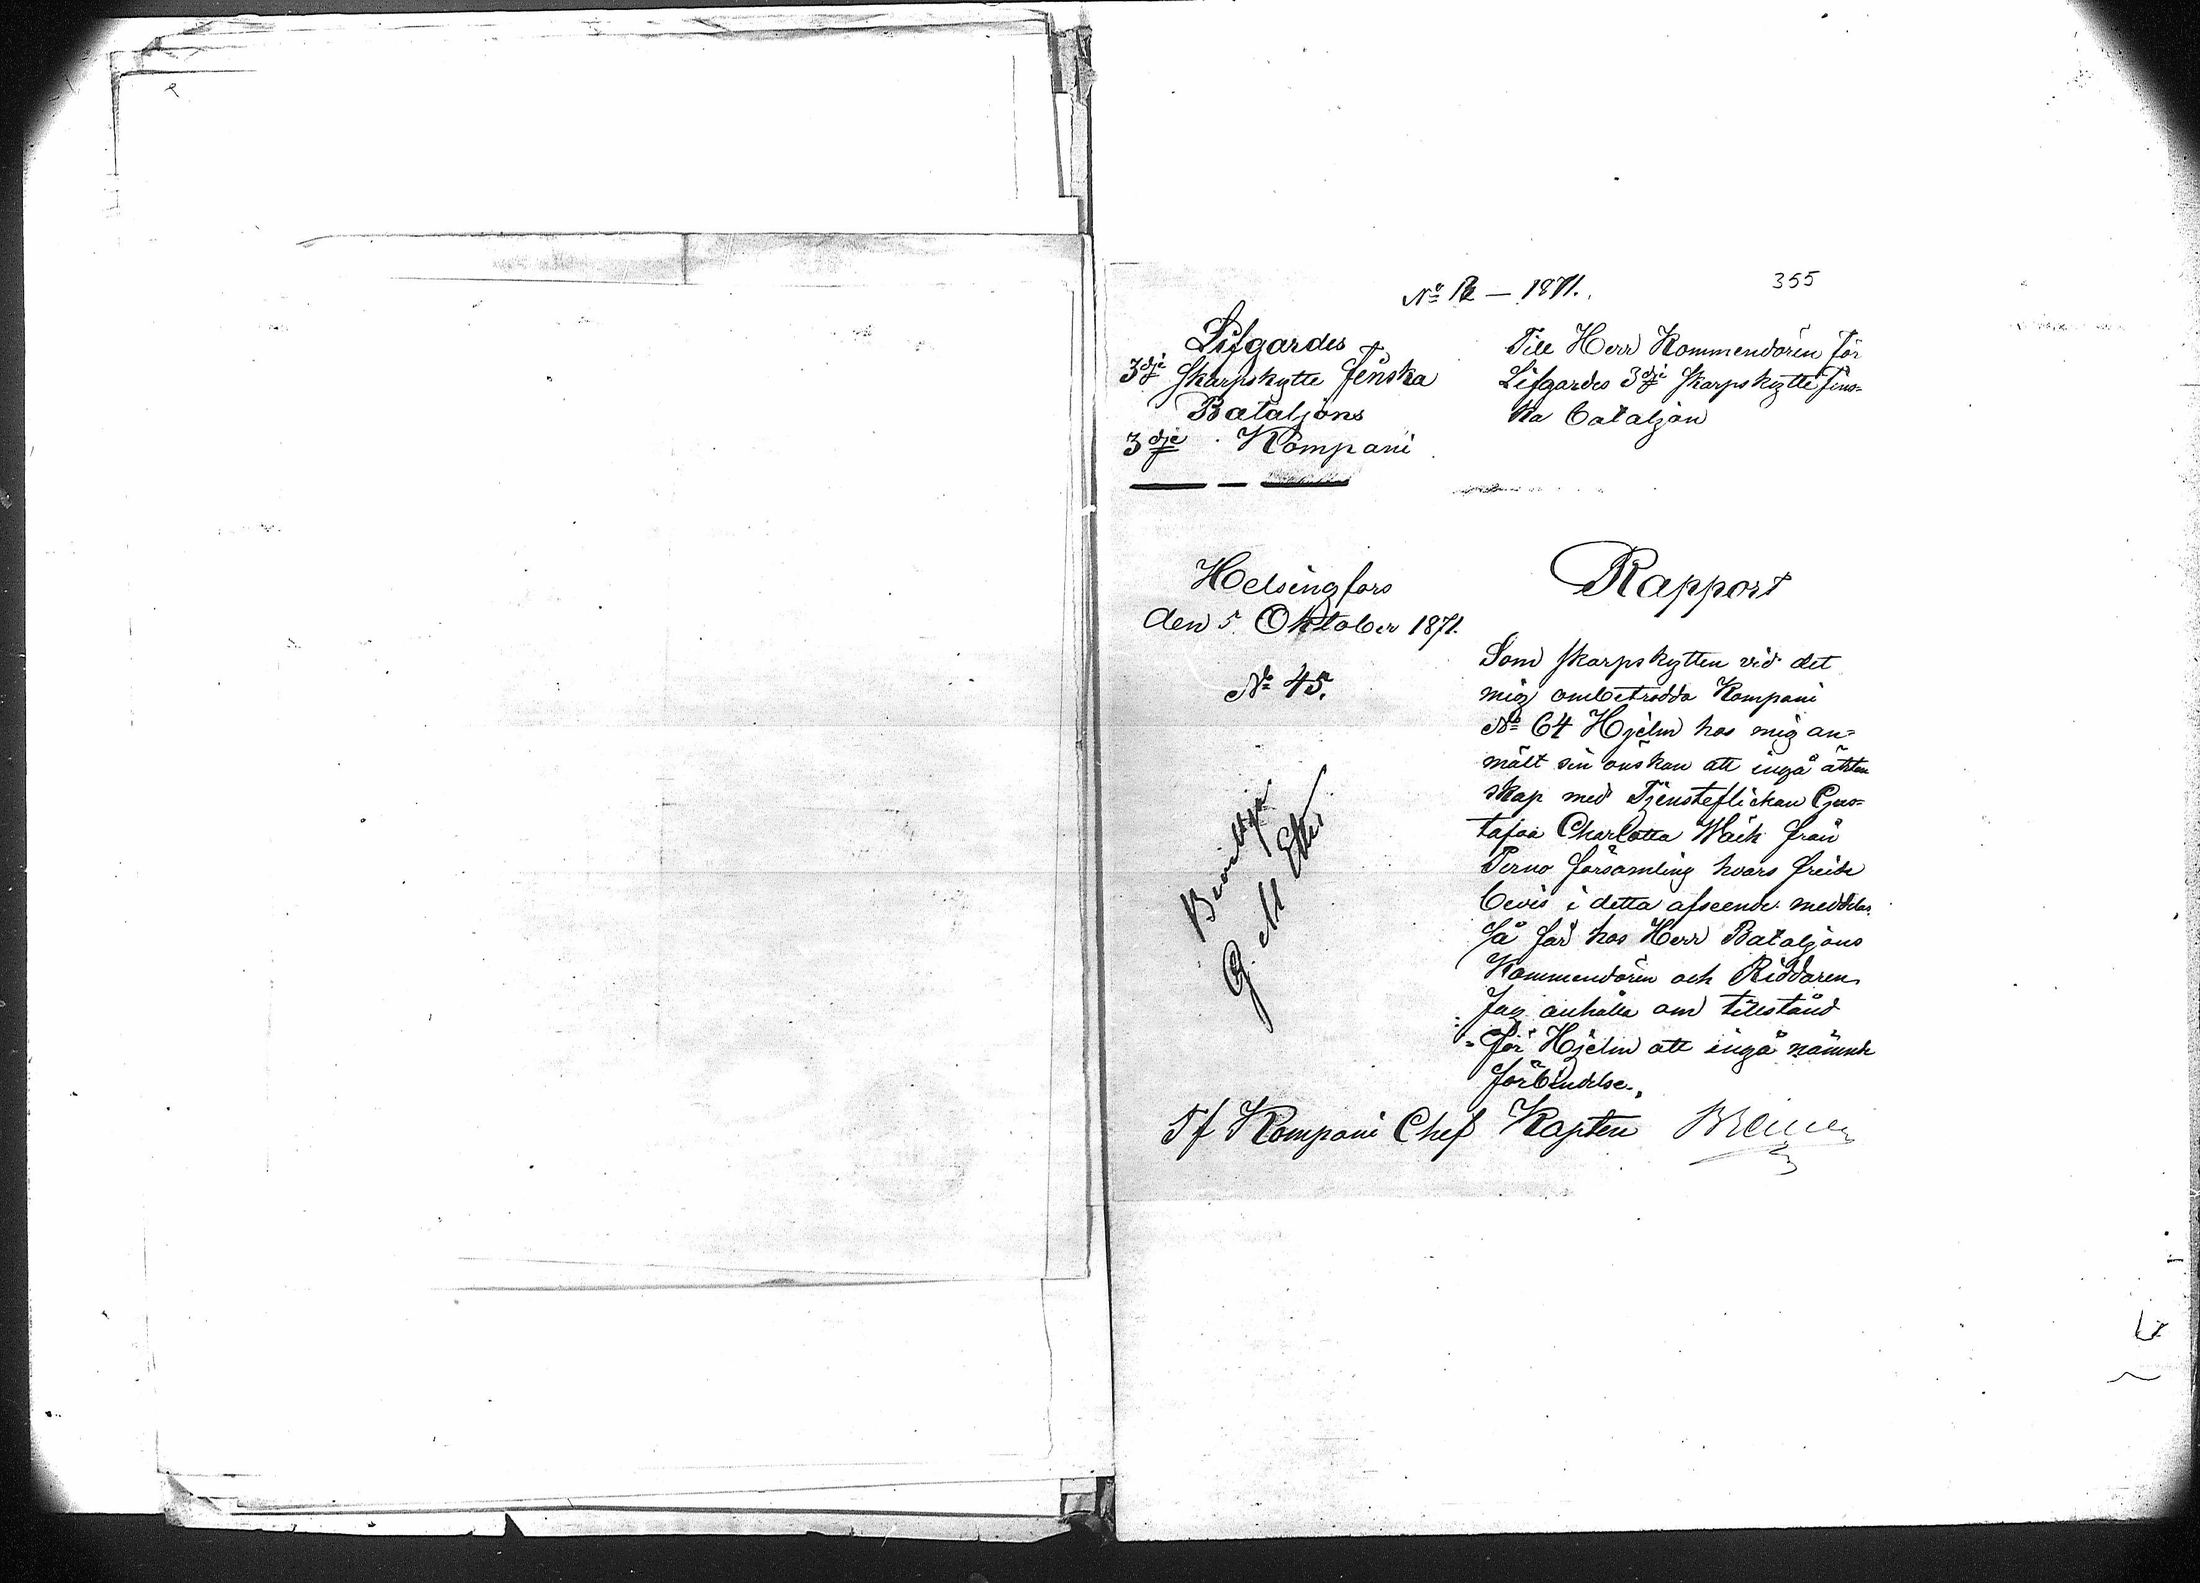 355
Lifgardes
3dje Skarpskytte Finska
Bataljons
3dje Kompani
Till Herr Kommendören för
Lifgardes 3dje Skarpskytte Fins-
ka bataljon
Helsingfors
den 5 Oktober 1871.
No 45.
Rapport
Som skarpskytten vid det
mig ombetrodda Kompani
No 64 Hjelm hos mig an-
mält sin önskan att ingå äkten
skap med Tjensteflickan Gus-
tafva Charlotta Waik från
Perno församling hvars freide
bevis i detta afseende meddelas.
Så får hos Herr Bataljons
Kommendören och Riddaren
Jag anhålla om tillstånd
för Hjelm att ingå nämnde
förbindelse.
Tf Kompani Chef Kapten
Beviljas